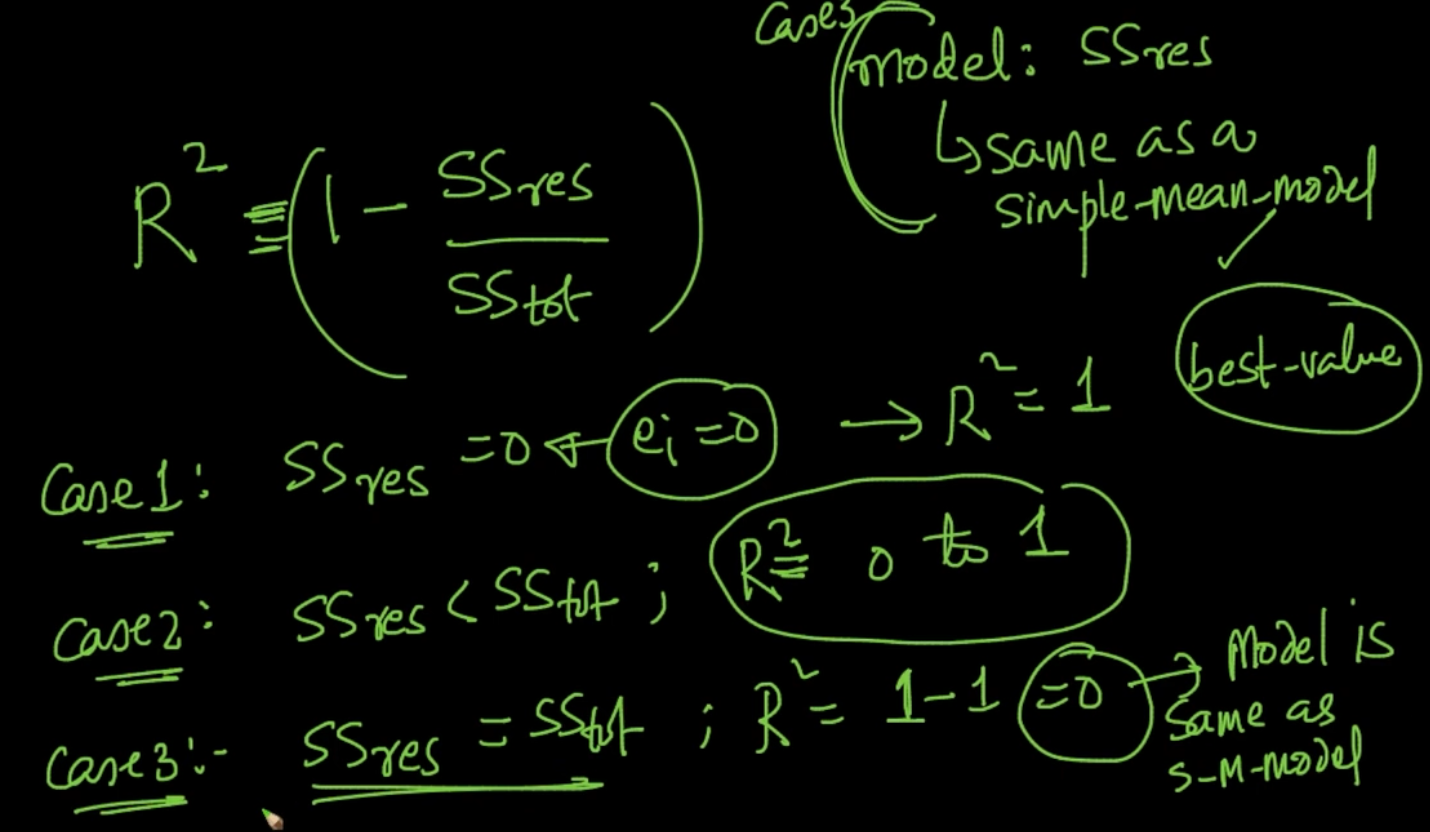 Case3
model: SSres
↳ same as a
simple-mean-model
R² ≡ (1 - SSres / SStot)
best-value
Case1: SSres =0 ← ei =0 → R² = 1
Case2: SSres < SStot ; R² = 0 to 1
Case3:- SSres = SStot ; R² = 1-1 =0 → Model is
same as
S-M-model